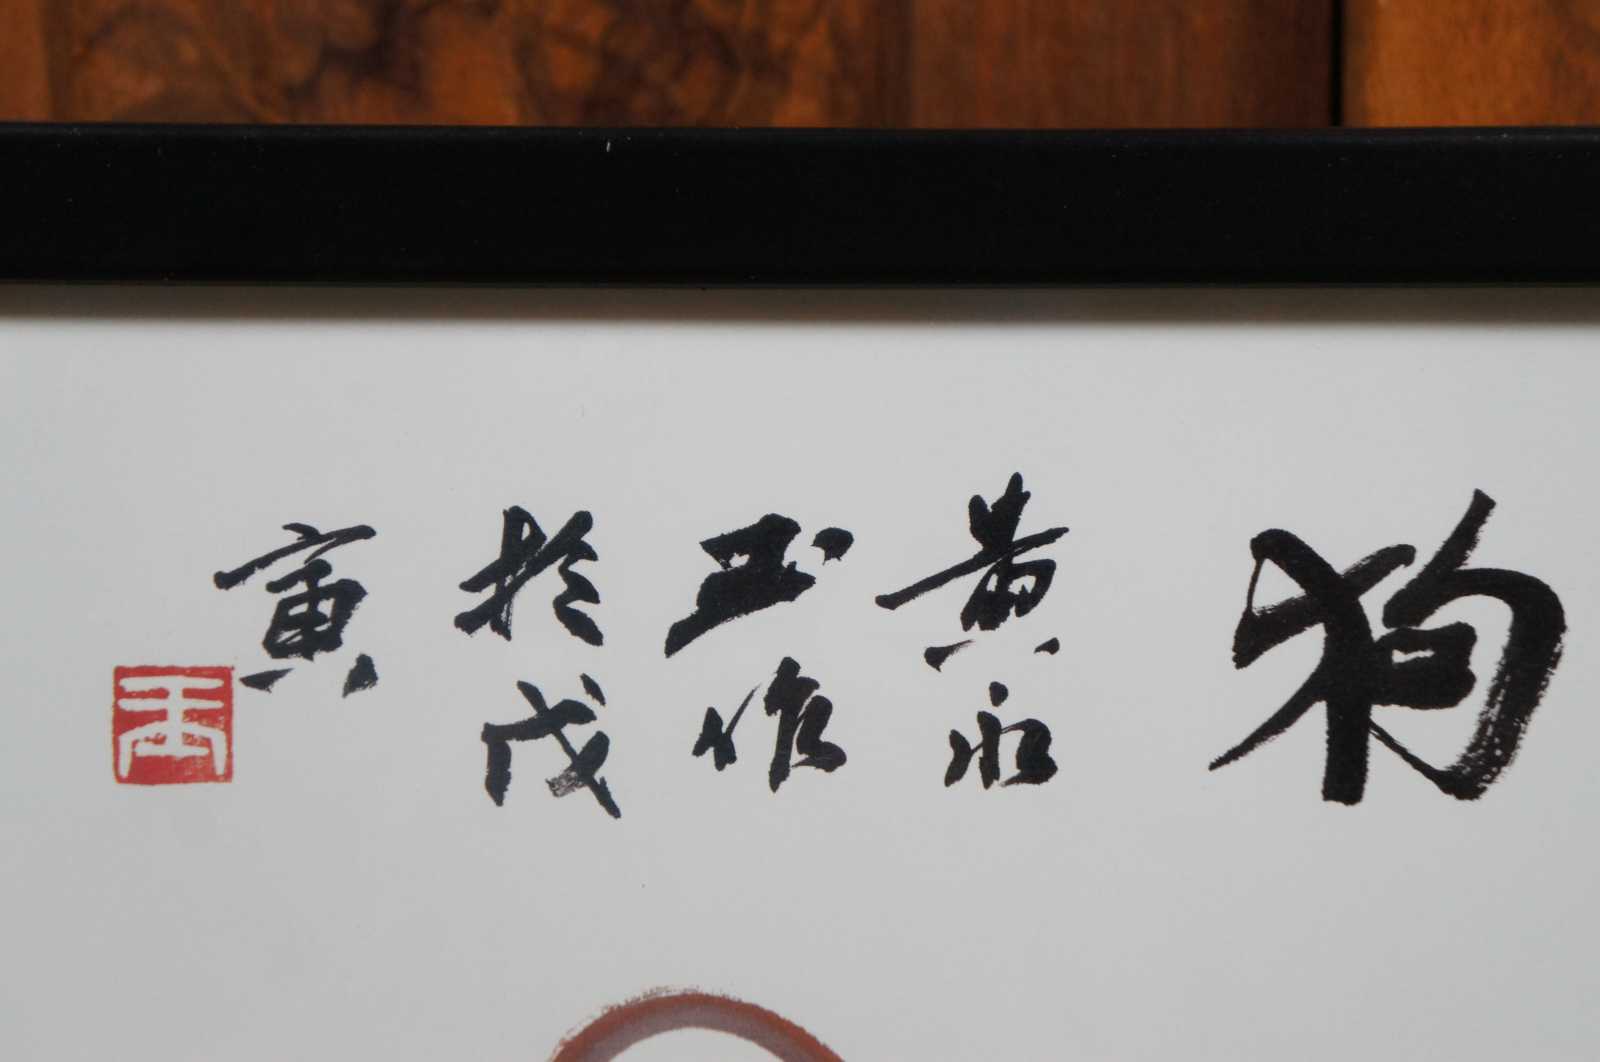 狗
黄永
玉作
於戊
寅